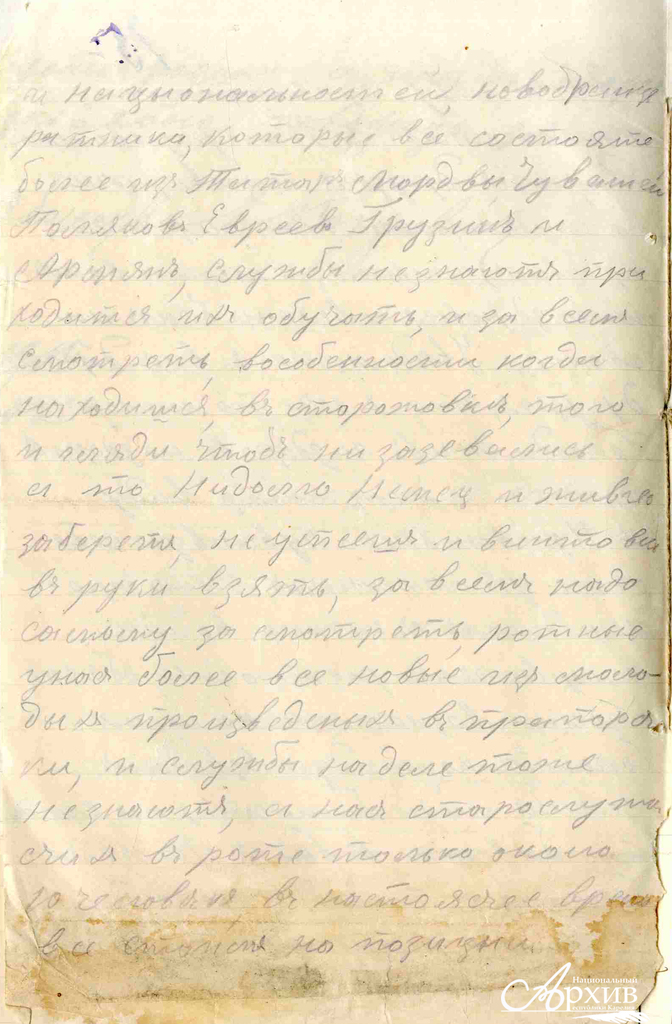 и нацыональностей, новобранца
ратника, которые все состоятъ
более изъ Татаръ мордвы Чувашей
Поляковъ Евреевъ Грузинъ и
Армянъ, службы незнаютъ при
ходится ихъ обучать, и за всемъ
смотреть, вособенности когда
находимся, въ сторожовкъ, того
и гляди чтобъ незазевались
а то Нидолго Немец и живго
заберетъ, неуспеешъ и винтовки
въ руки взять, за всемъ надо
самому за смотреть, ротные
унасъ более все новые изъ моло-
дыхъ произведеныхъ въ прапорщ
ки, и службы наделе тоже
незнаютъ, а насъ старослужа
счихъ въ роте только около
10 человекъ въ настоясчее время
все стоимъ на позиции
Национальный
Архив
Республики Карелия